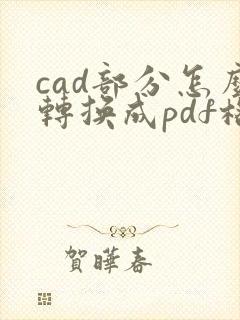 cad部分怎麼
轉換成pdf格
賀曄春